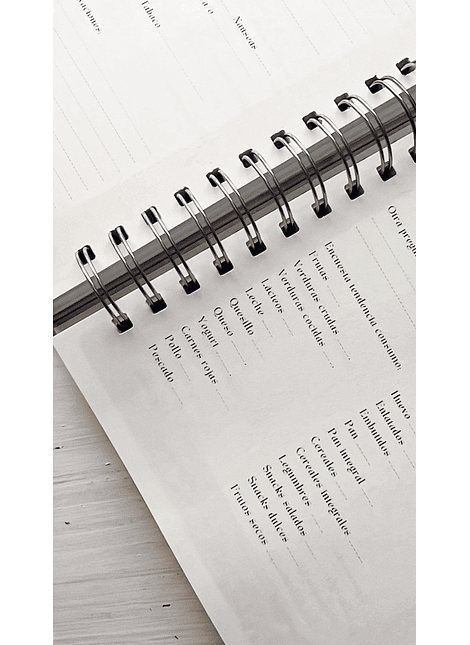 aciones.
Tabaco
a o
Náuseas
Otra pregu
Encuesta tendencia consumo.
Frutas
Verduras crudas
Verduras cocidas
Lácteos
Leche
Quesillo
Queso
Yogurt
Carnes rojas
Pollo
Pescado
Huevo
Enlatados
Embutidos
Pan
Pan integral
Cereales
Cereales integrales
Legumbres
Snacks salados
Snacks dulces
Frutos secos